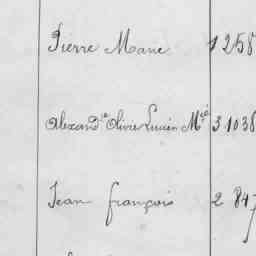 Pierre Marie 1 258
Alexandre Olivier Lucien Mié 3 1038
Jean françois 2 847